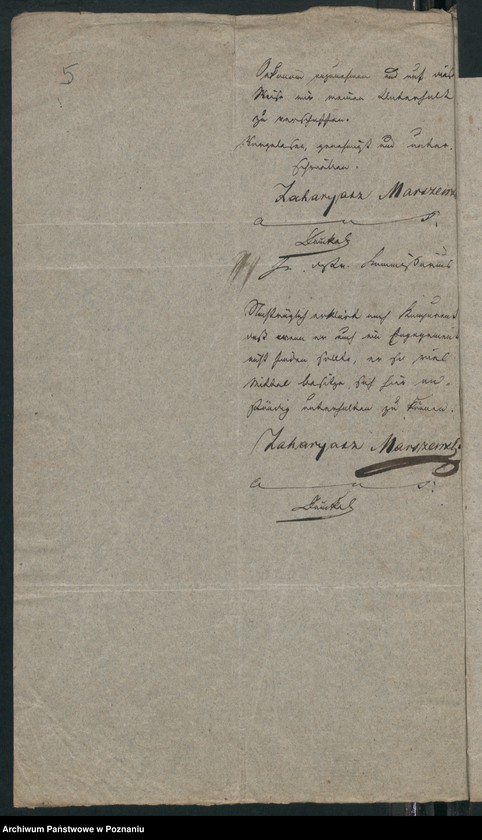 5
Oekonom anzunehmen und auf diese
Weise mir meinen Unterhalt
zu verschaffen.
Vorgelesen, genehmigt und unter-
schrieben.
Zaharyasz Marszew
a u s.
Dunkel
Nachträglich erklärt noch Comparent
daß wenn er auch ein Engagement
nicht finden sollte, er so viel
Mittel besitze, sich hier an-
ständig unterhalten zu können.
Zaharyasz Marszewsk
a u s.
Dunkel
Archiwum Państwowe w Poznaniu